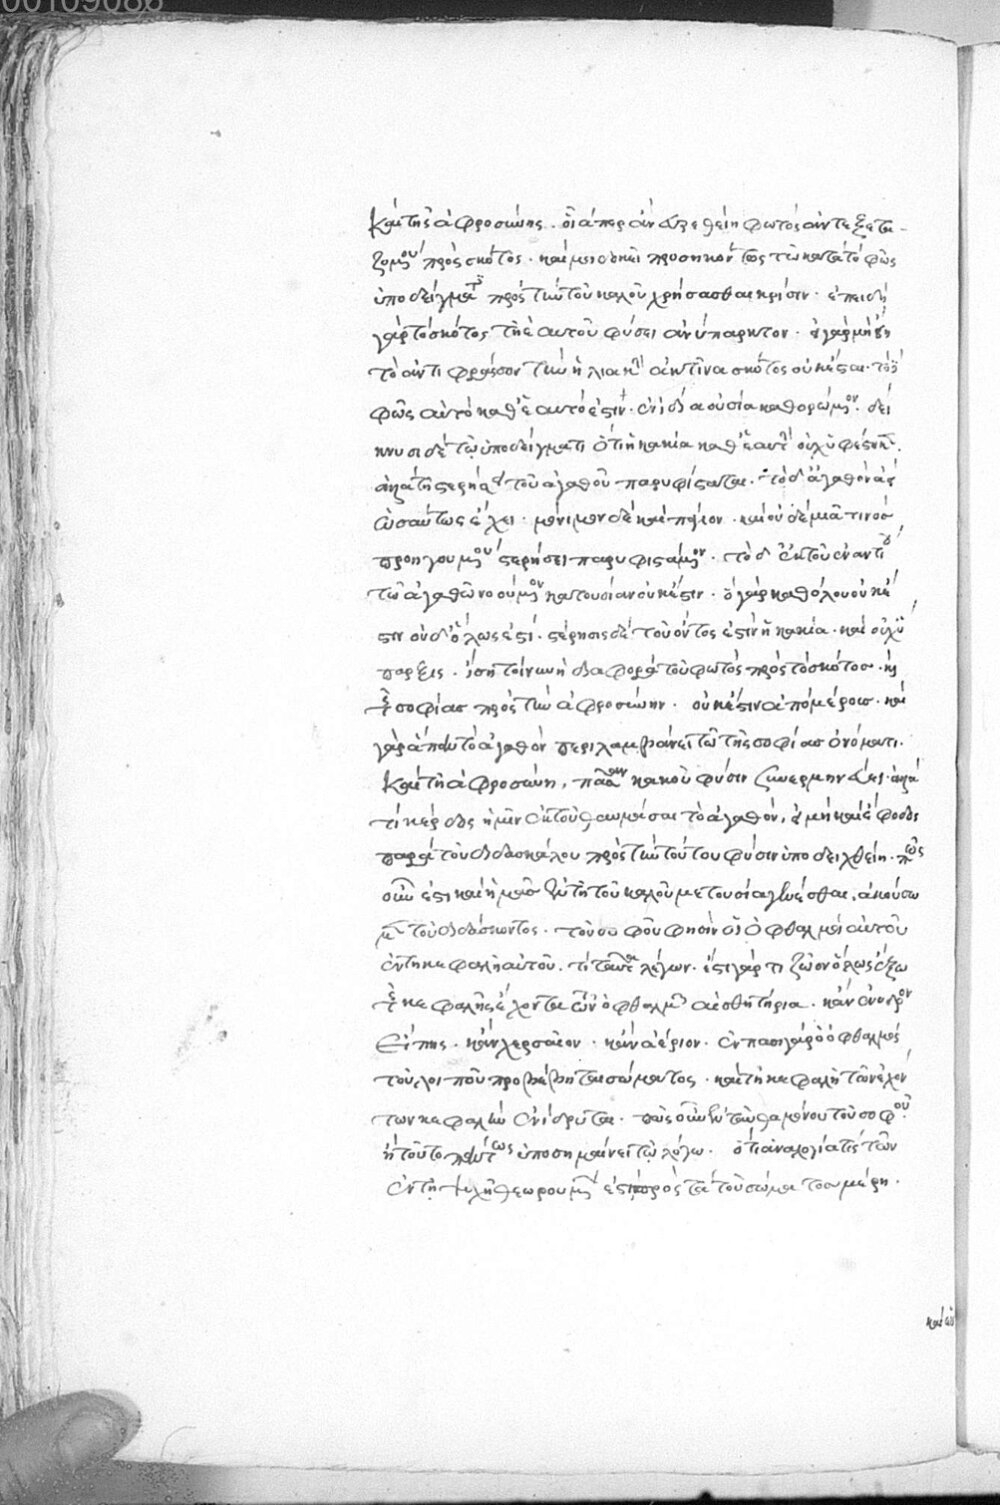 00109086
καὶ τῆς ἀφροσύνης. οἵα περ ἂν εὑρεθείη φωτὸς ἀντεξετα-
ζομένου πρὸς σκότος. καί μοι δοκεῖ προσηκόντως τῷ κατὰ τὸ φῶς
ὑποδείγματι πρὸς τὴν τοῦ καλοῦ χρήσασθαι κρίσιν. ἐπειδὴ
γὰρ τὸ σκότος τῇ ἑαυτοῦ φύσει ἀνύπαρκτον. εἰ γὰρ μὴ εἴη
τὸ ἀντιφράσσον τὴν ἡλιακὴν ἀκτῖνα σκότος οὐκ ἔσται. τὸ δὲ
φῶς αὐτὸ καθ' ἑαυτό ἐστιν. ἐν ἰδία οὐσία καθορώμενον. δεί
κνυσι δὲ τῷ ὑποδείγματι ὅτι ἡ κακία καθ' ἑαυτὴν οὐχ ὑφέστηκεν.
ἀλλὰ τῇ στερήσει τοῦ ἀγαθοῦ παρυφίσταται. τὸ δ' ἀγαθὸν ἀεὶ
ὡσαύτως ἔχει. μόνιμον δὲ καὶ πάγιον. καὶ οὐδεμιᾶ τινος
προηγουμένου στερήσει παρυφιστάμενον. τὸ δ' ἐκ τοῦ ἐναντίου
τῷ ἀγαθῷ νοούμενον κατ' οὐσίαν οὐκ ἔστιν. ὃ γὰρ καθόλου οὐκ ἔ
στιν οὐδ' ὅλως ἐστί. στέρησις δὲ τοῦ ὄντος ἐστὶν ἡ κακία. καὶ οὐχ ὕ
παρξις. ἴση τοίνυν ἡ διαφορὰ τοῦ φωτὸς πρὸς τὸ σκότος. καὶ
τῆς σοφίας πρὸς τὴν ἀφροσύνην. οὐκ ἔστιν ἀπὸ μέρους. καὶ
γὰρ ἅπαν τὸ ἀγαθὸν περιλαμβάνει τῷ τῆς σοφίας ὀνόματι.
καὶ τῇ ἀφροσύνη, πᾶσαν κακοῦ φύσιν συνερμηνεύει. ἀλλὰ
τί κέρδος ἡμῖν ἐκ τοῦ θαυμάσαι τὸ ἀγαθόν, εἰ μὴ καὶ ἔφοδος
παρὰ τοῦ διδασκάλου πρὸς τὴν τούτου φύσιν ὑποδειχθείη. πῶς
οὖν ἐστι καὶ ἡμᾶς ἐν τῇ τοῦ καλοῦ μετουσία γενέσθαι, ἀκούσω
μεν τοῦ διδάσκοντος. τοῦ σοφοῦ φησὶν οἱ ὀφθαλμοὶ αὐτοῦ
ἐν τῇ κεφαλῇ αὐτοῦ. τί ταῦτα λέγων. ἔστι γάρ τι ζῶον ὅλως ἔξω
τῆς κεφαλῆς ἔχον τὰ τῶν ὀφθαλμῶν αἰσθητήρια. κἂν ἔνυδρον
εἴπης. κἂν χερσαῖον. κἂν ἀέριον. ἐν πᾶσι γὰρ ὁ ὀφθαλμὸς
τοῦ λοιποῦ προβέβηται σώματος. καὶ τῇ κεφαλῇ τῶν ἐχόν
των κεφαλὴν ἐνίδρυται. πῶς οὖν ἐνταῦθα μόνου τοῦ σοφοῦ.
ἢ τοῦτο πάντως ὑποσημαίνει τῷ λόγω. ὅτι ἀναλογία τις τῶν
ἐν τῇ ψυχῇ θεωρουμένων ἐστὶ πρὸς τὰ τοῦ σώματος μέρη.